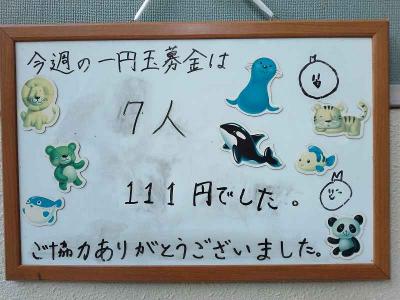 今週の一円玉募金は
7人
111円でした。
ご協力ありがとうございました。